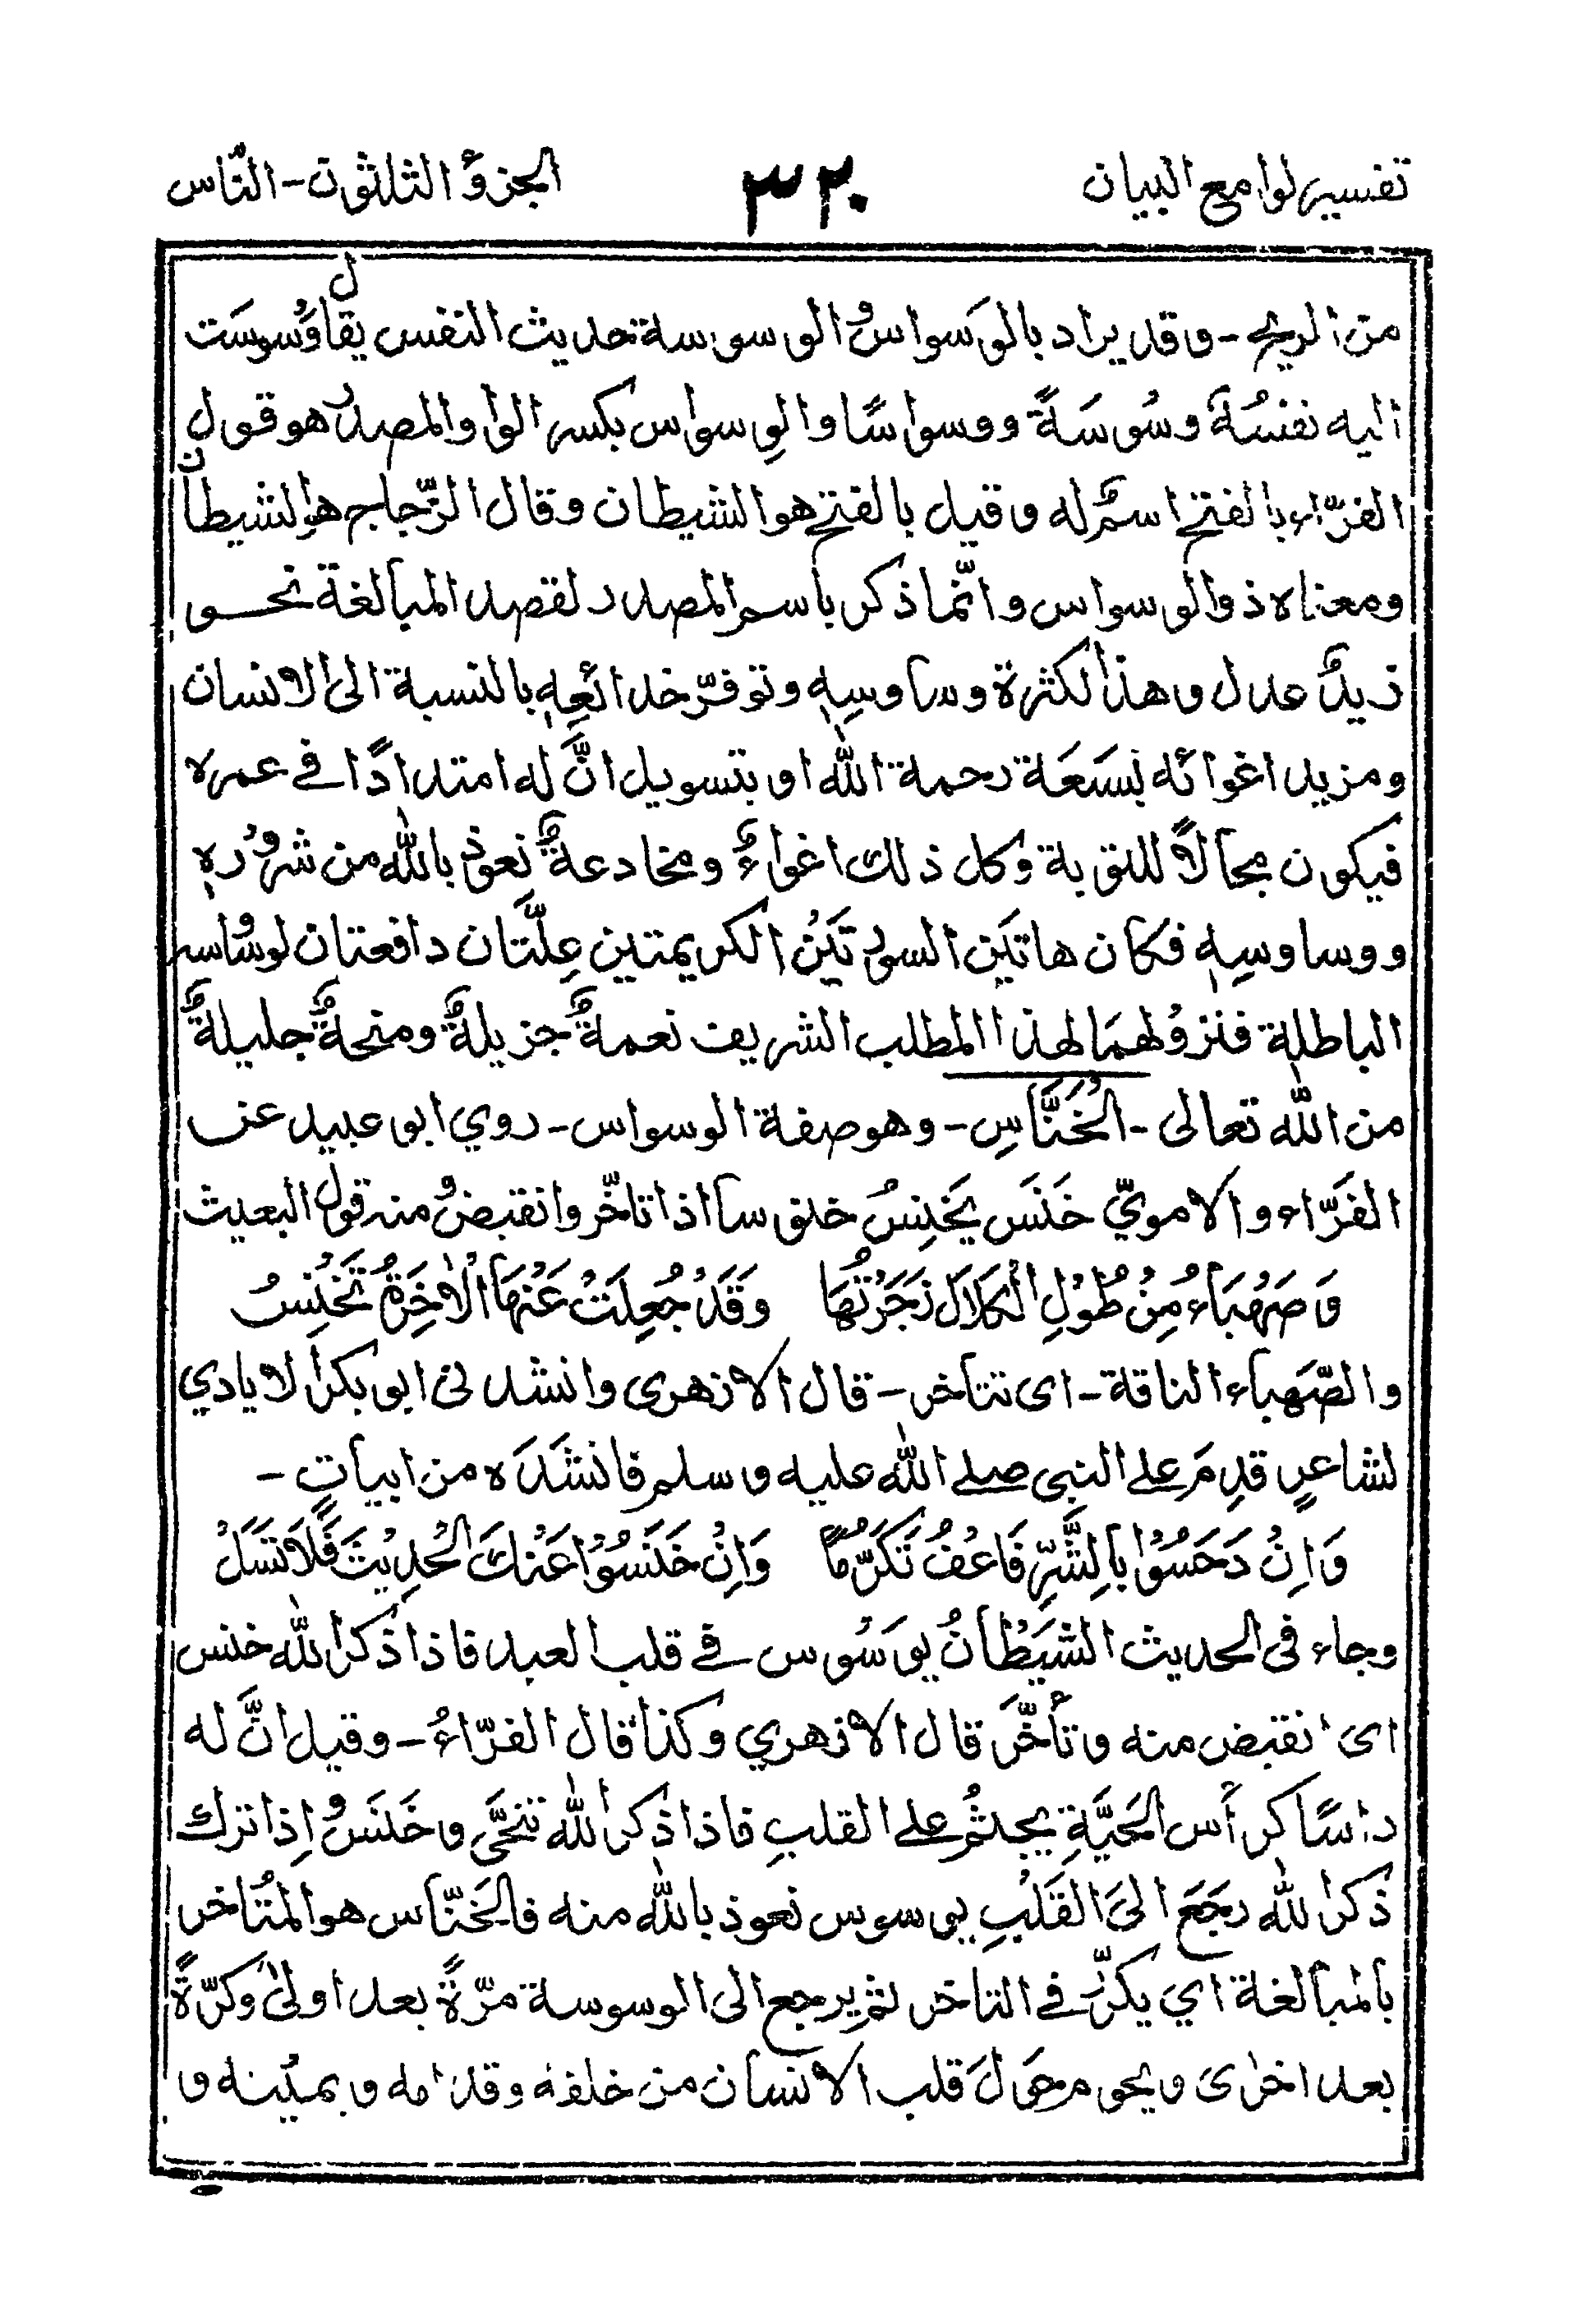 تفسير لوامع البيان
٣٢٠
الجزؤ الثلثون - النّاس
من الريح - وقد يراد بالوَسواس والوسوسة حديث النفس يقال وَسْوسَت
اليه نفسُهٗ وسْوسَةً ووسواسًا والوِسواس بكسر الواو المصدر هو قول
الفرّاء بالفتح اسمٌ له وقيل بالفتح هو الشيطان وقال الزّجاج هو الشيطان
ومعناه ذو الوسواس وانّما ذكر باسم المصدر لقصد المبالغة نحو
زيدٌ عدل وهذا لكثرة وساوسِهٖ وتوفّر خدائعِهٖ بالنسبة الى الانسان
ومزيد اغوائه بسَعَة رحمة اللّٰه او بتسويل انَّ له امتدادًا في عمره
فيكون مجالًا للتوبة وكل ذلك اغواءٌ ومخادعةٌ نعوذ باللّٰه من شرُوْرهٖ
ووساوسِهٖ فكان هاتَين السورتَيْن الكريمتين عِلَّتان دافعتان لوسْاسه
الباطلة فنزوْلهمَا لهذا المطلب الشريف نعمةٌ جزيلةٌ ومنحةٌ جليلةٌ
من اللّٰه تعالى - الْخَنَّاسِ - وهو صفة الوسواس - روي ابو عبيد عن
الفَرَّاء والامويّ خَنَسَ يَخْنِسُ خلوسا اذا تاخّر وانقبض ومنه قول البعيث
وَصَهْبَاءُ مِنْ طُوْلِ الْكَلَالِ زَجَرْتُهَا وَقَدْ جُعِلَتْ عَنْهَا الْاٰخِرَةُ تَخْنِسُ
والصّهباء الناقة - اى تتاخر - قال الازهرى وانشد نى ابو بكر الايادي
لشاعرٍ قدِمَ على النبى صلے اللّٰه عليه وسلم فانشَدَه من ابياتٍ -
وَاِنْ دَحَسُوْا بِالشَّرِّ فَاعْفُ تَكَرُّمًا وَاِنْ خَنَسُوْا عَنْكَ الْحَدِيْثَ فَلَا تَسَلْ
وجاء فى الحديث الشَيْطَانُ يوَسْوس في قلب العبد فاذا ذكر اللّٰه خنس
اى انقبض منه وتأخَّرَ قال الازهري وكذا قال الفرّاءُ - وقيل انَّ له
راسًا كرأس الحَيَّةِ يجثُم على القلبِ فاذا ذكر اللّٰه تنحَّى وخَنَسَ واِذا ترك
ذكر اللّٰه رجَعَ الىَ القَلْبِ يوسوس نعوذ باللّٰه منه فالخَنّاس هو المتُاخر
بالمبالغة اي يكرّر في التاخر ثم يرجع الى الوسوسة مرّةً بعد اولىٰ وكرّةً
بعد اخرٰى ويحوم حَولَ قلب الانسان من خلفهٖ وقدامه وبميْنه و